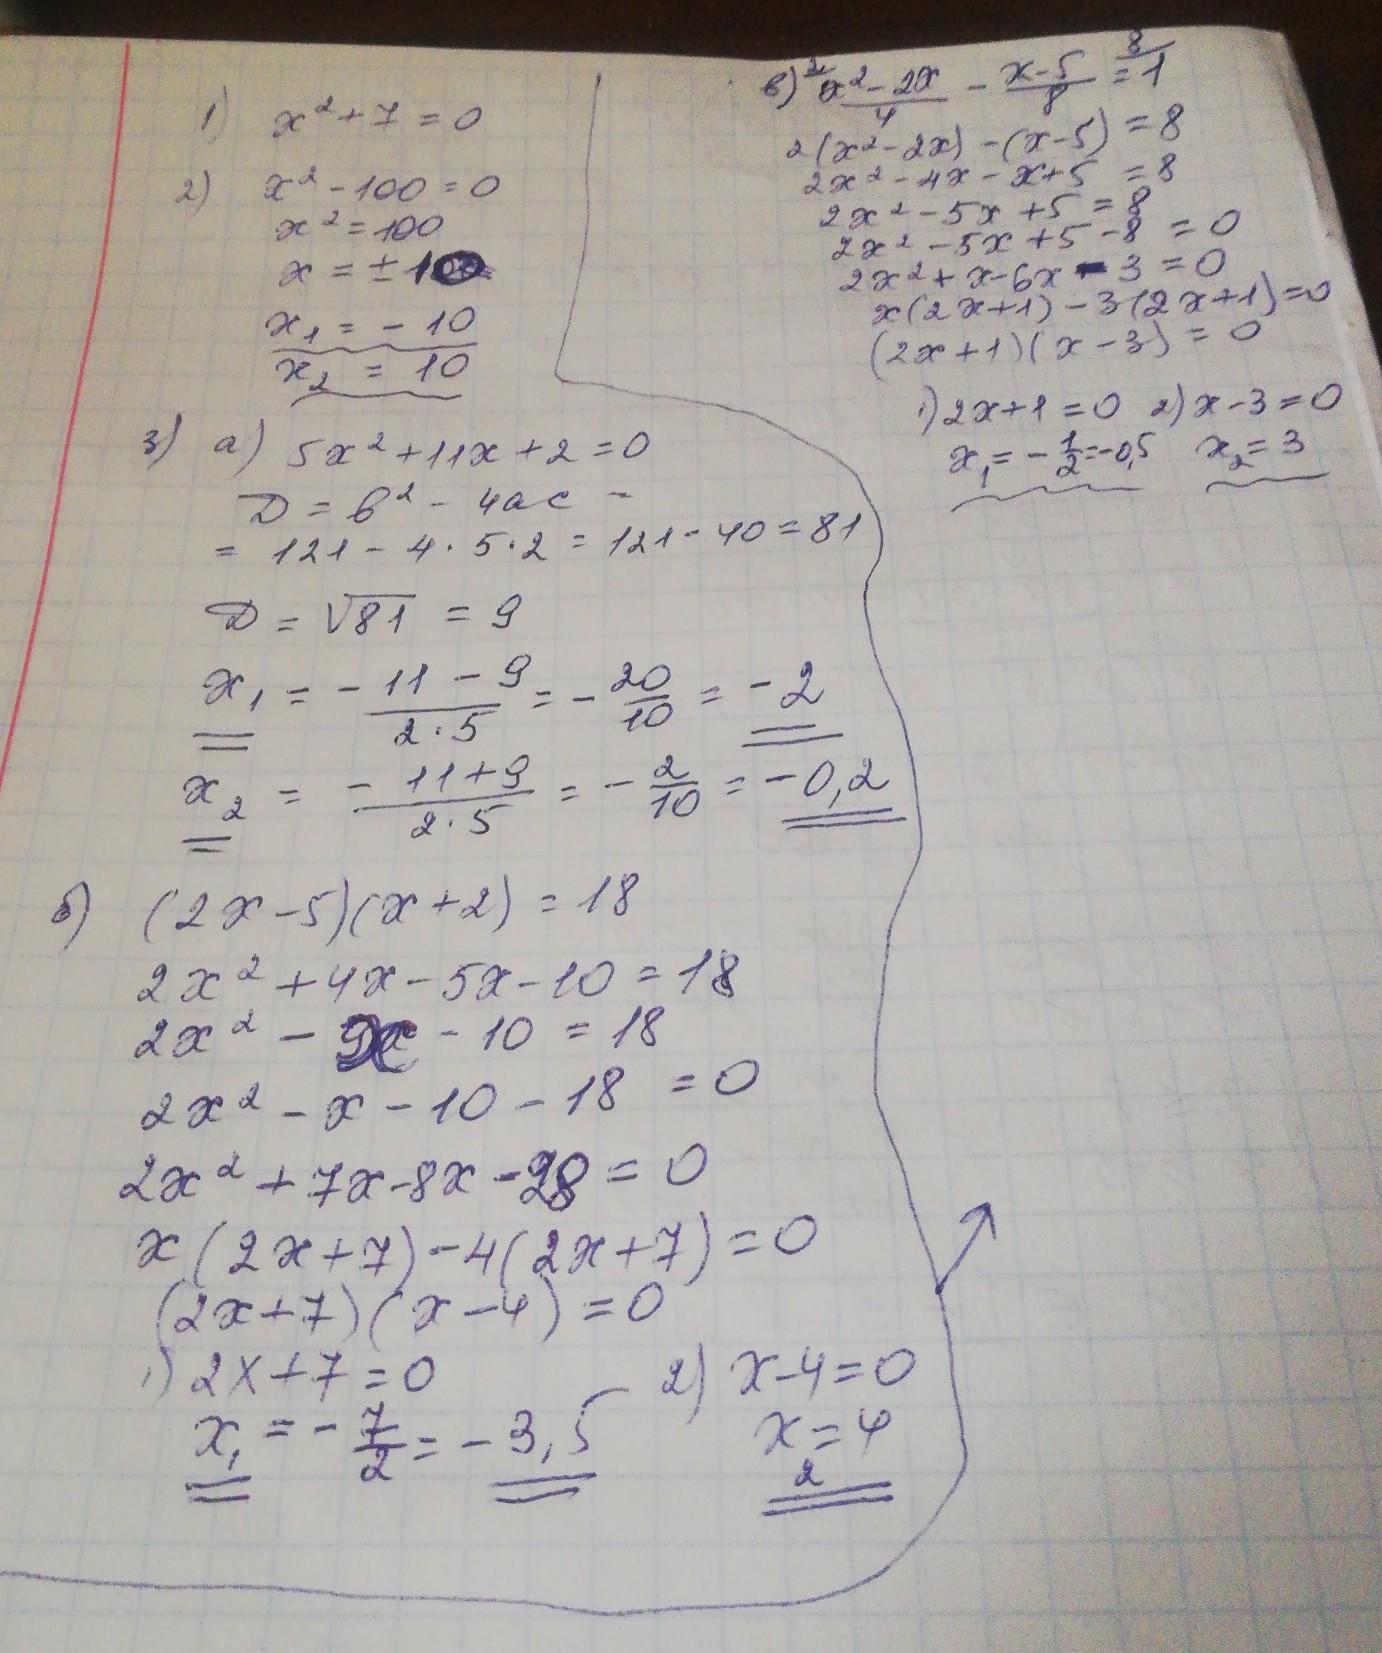 1) x² + 7 = 0
2) x² - 100 = 0
x² = 100
x = ± 10
x₁ = - 10
x₂ = 10
3) а) 5x² + 11x + 2 = 0
D = b² - 4ac =
= 121 - 4 · 5 · 2 = 121 - 40 = 81
D = √81 = 9
x₁ = (- 11 - 9)/(2 · 5) = - 20/10 = - 2
x₂ = (- 11 + 9)/(2 · 5) = - 2/10 = - 0,2
б) (2x - 5)(x + 2) = 18
2x² + 4x - 5x - 10 = 18
2x² - x - 10 = 18
2x² - x - 10 - 18 = 0
2x² + 7x - 8x - 28 = 0
x(2x + 7) - 4(2x + 7) = 0
(2x + 7)(x - 4) = 0
1) 2x + 7 = 0 2) x - 4 = 0
x₁ = - 7/2 = - 3,5 x₂ = 4
в) ²⁄ (x² - 2x)/4 - (x - 5)/8 = ⁸⁄ 1
2(x² - 2x) - (x - 5) = 8
2x² - 4x - x + 5 = 8
2x² - 5x + 5 = 8
2x² - 5x + 5 - 8 = 0
2x² + x - 6x - 3 = 0
x(2x + 1) - 3(2x + 1) = 0
(2x + 1)(x - 3) = 0
1) 2x + 1 = 0 2) x - 3 = 0
x₁ = - 1/2 = - 0,5 x₂ = 3